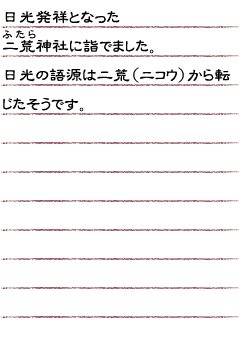 日光発祥となった
ふたら
二荒神社に詣でました。
日光の語源は二荒（ニコウ）から転
じたそうです。